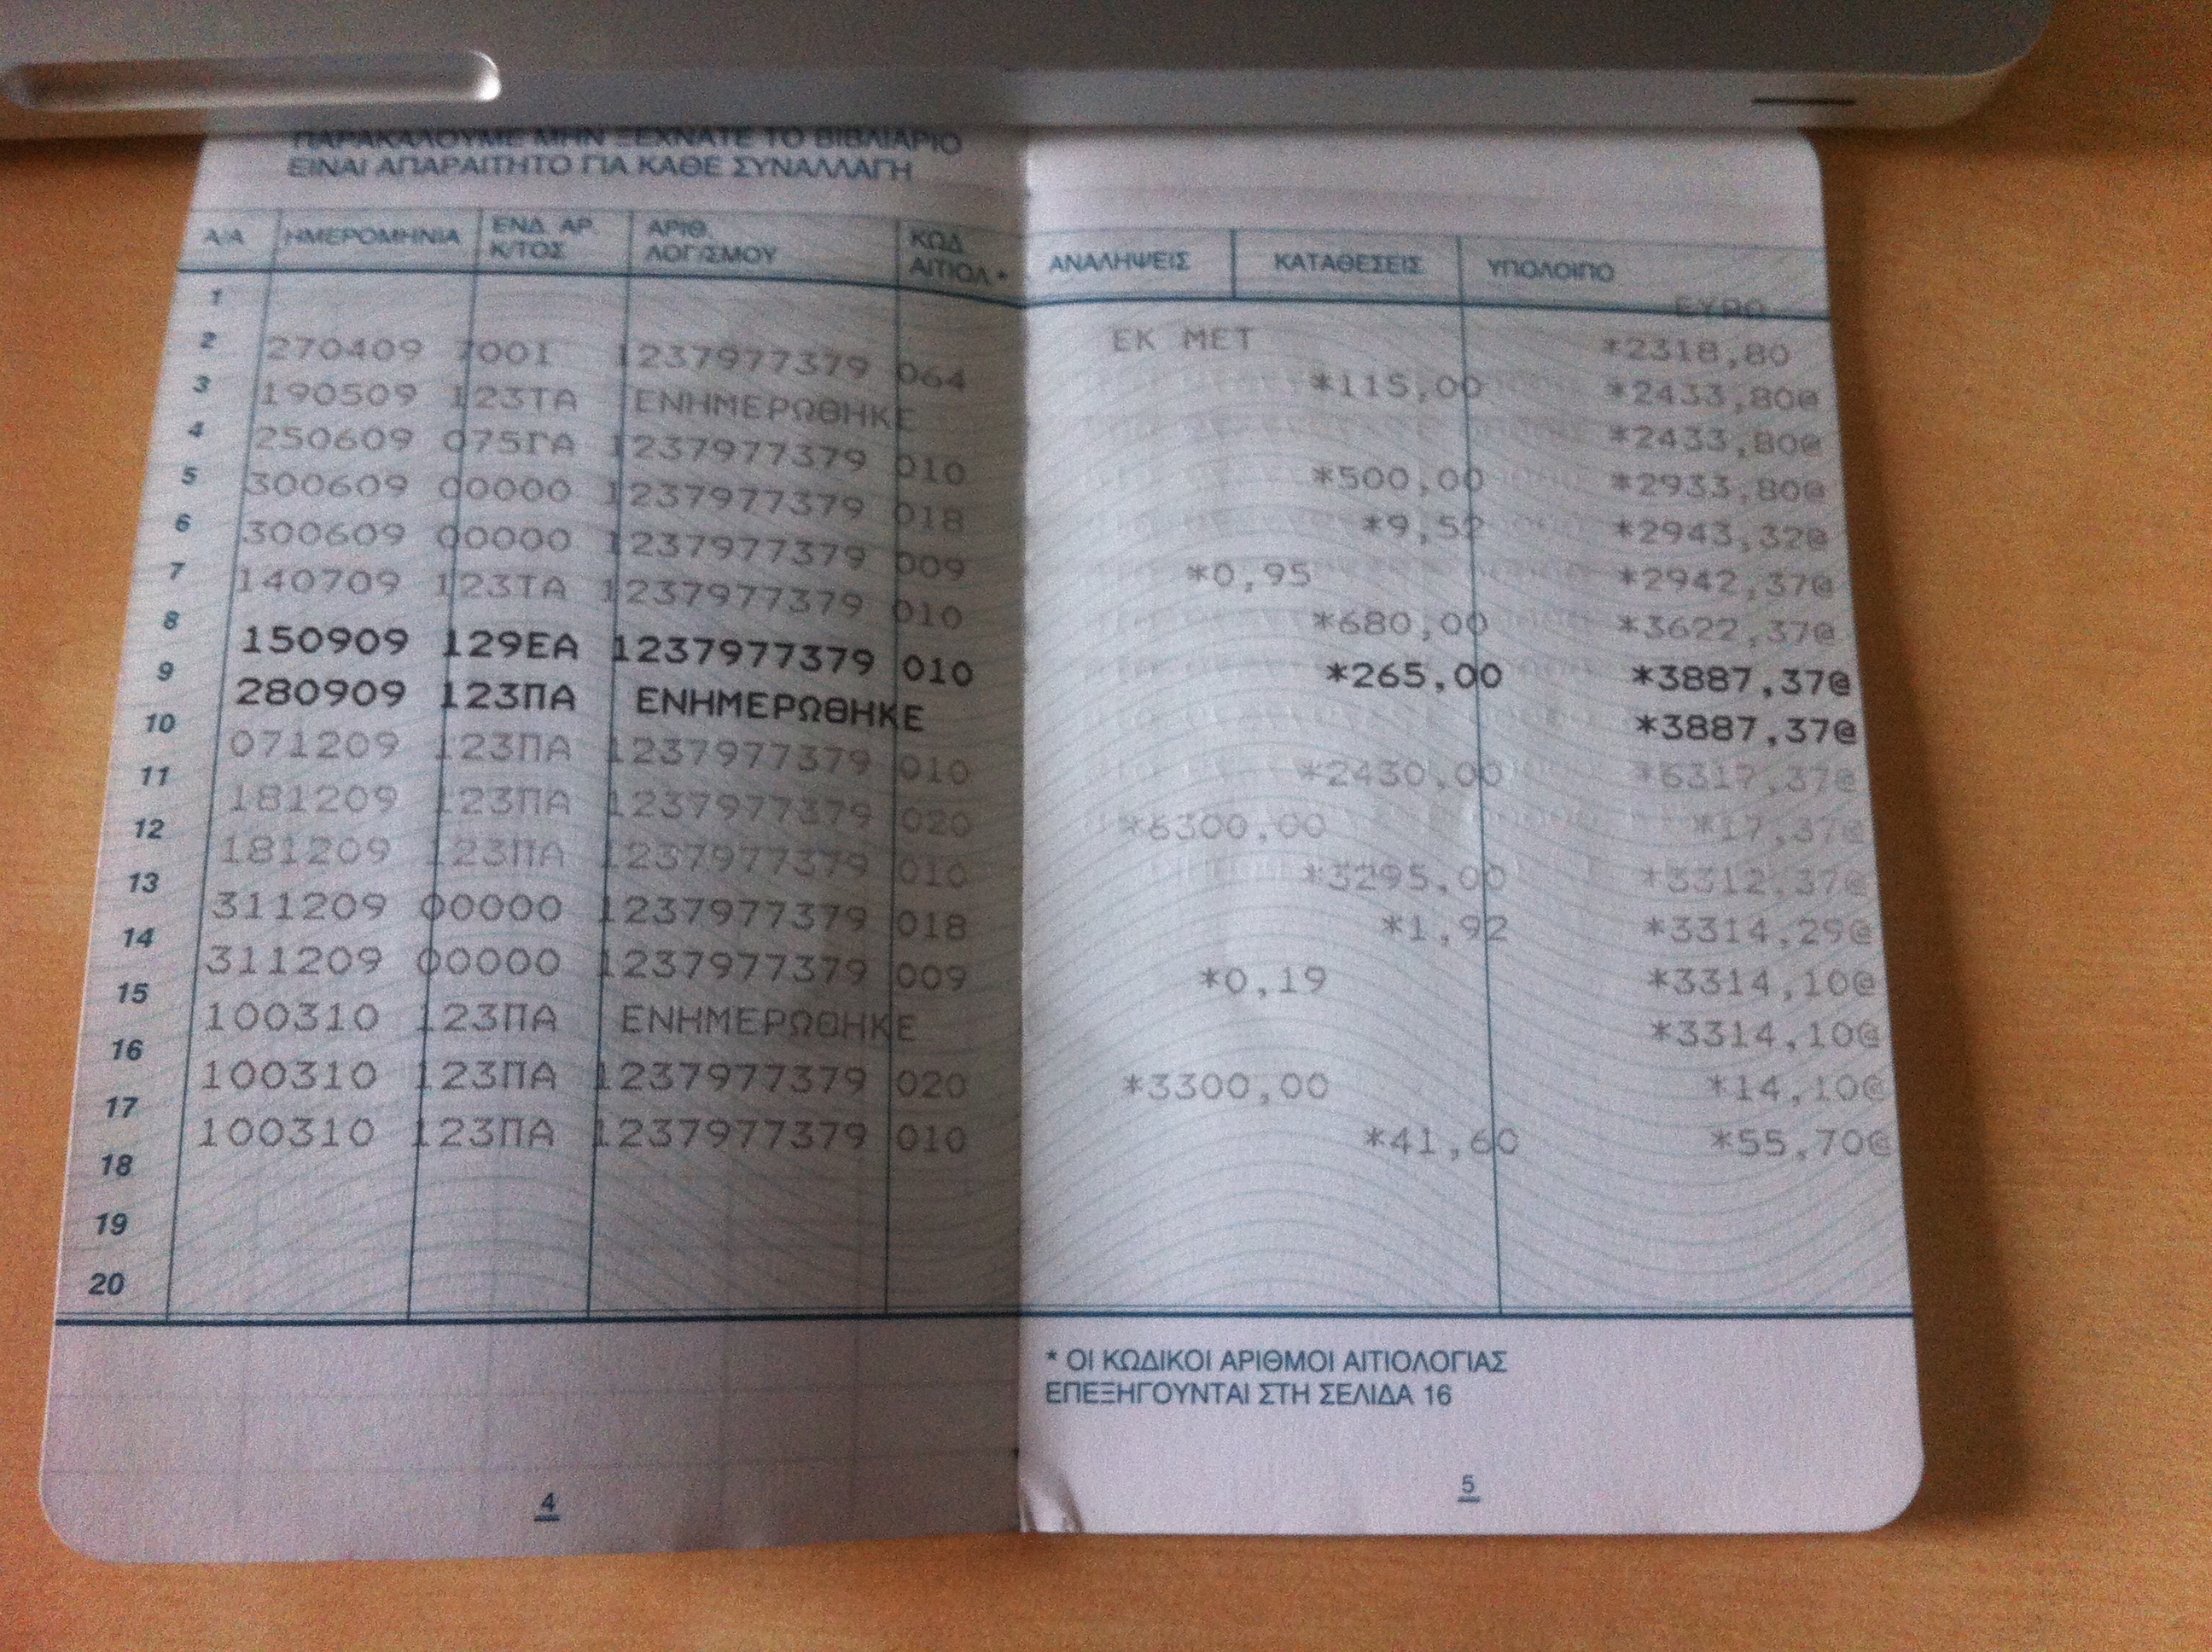 ΠΑΡΑΚΑΛΟΥΜΕ ΜΗΝ ΞΕΧΝΑΤΕ ΤΟ ΒΙΒΛΙΑΡΙΟ
ΕΙΝΑΙ ΑΠΑΡΑΙΤΗΤΟ ΓΙΑ ΚΑΘΕ ΣΥΝΑΛΛΑΓΗ
Α/Α ΗΜΕΡΟΜΗΝΙΑ ΕΝΔ. ΑΡ. Κ/ΤΟΣ ΑΡΙΘ. ΛΟΓ/ΣΜΟΥ ΚΩΔ. ΑΙΤΙΟΛ.* ΑΝΑΛΗΨΕΙΣ ΚΑΤΑΘΕΣΕΙΣ ΥΠΟΛΟΙΠΟ
ΕΥΡΩ
1 ΕΚ ΜΕΤ *2318,80
2 270409 7001 1237977379 064 *115,00 *2433,80@
3 190509 123ΤΑ ΕΝΗΜΕΡΩΘΗΚΕ *2433,80@
4 250609 075ΓΑ 1237977379 010 *500,00 *2933,80@
5 300609 00000 1237977379 018 *9,52 *2943,32@
6 300609 00000 1237977379 009 *0,95 *2942,37@
7 140709 123ΤΑ 1237977379 010 *680,00 *3622,37@
8 150909 129ΕΑ 1237977379 010 *265,00 *3887,37@
9 280909 123ΠΑ ΕΝΗΜΕΡΩΘΗΚΕ *3887,37@
10 071209 123ΠΑ 1237977379 010 *2430,00 *6317,37@
11 181209 123ΠΑ 1237977379 020 *6300,00 *17,37@
12 181209 123ΠΑ 1237977379 010 *3295,00 *3312,37@
13 311209 00000 1237977379 018 *1,92 *3314,29@
14 311209 00000 1237977379 009 *0,19 *3314,10@
15 100310 123ΠΑ ΕΝΗΜΕΡΩΘΗΚΕ *3314,10@
16 100310 123ΠΑ 1237977379 020 *3300,00 *14,10@
17 100310 123ΠΑ 1237977379 010 *41,60 *55,70@
18
19
20
* ΟΙ ΚΩΔΙΚΟΙ ΑΡΙΘΜΟΙ ΑΙΤΙΟΛΟΓΙΑΣ
ΕΠΕΞΗΓΟΥΝΤΑΙ ΣΤΗ ΣΕΛΙΔΑ 16
4
5